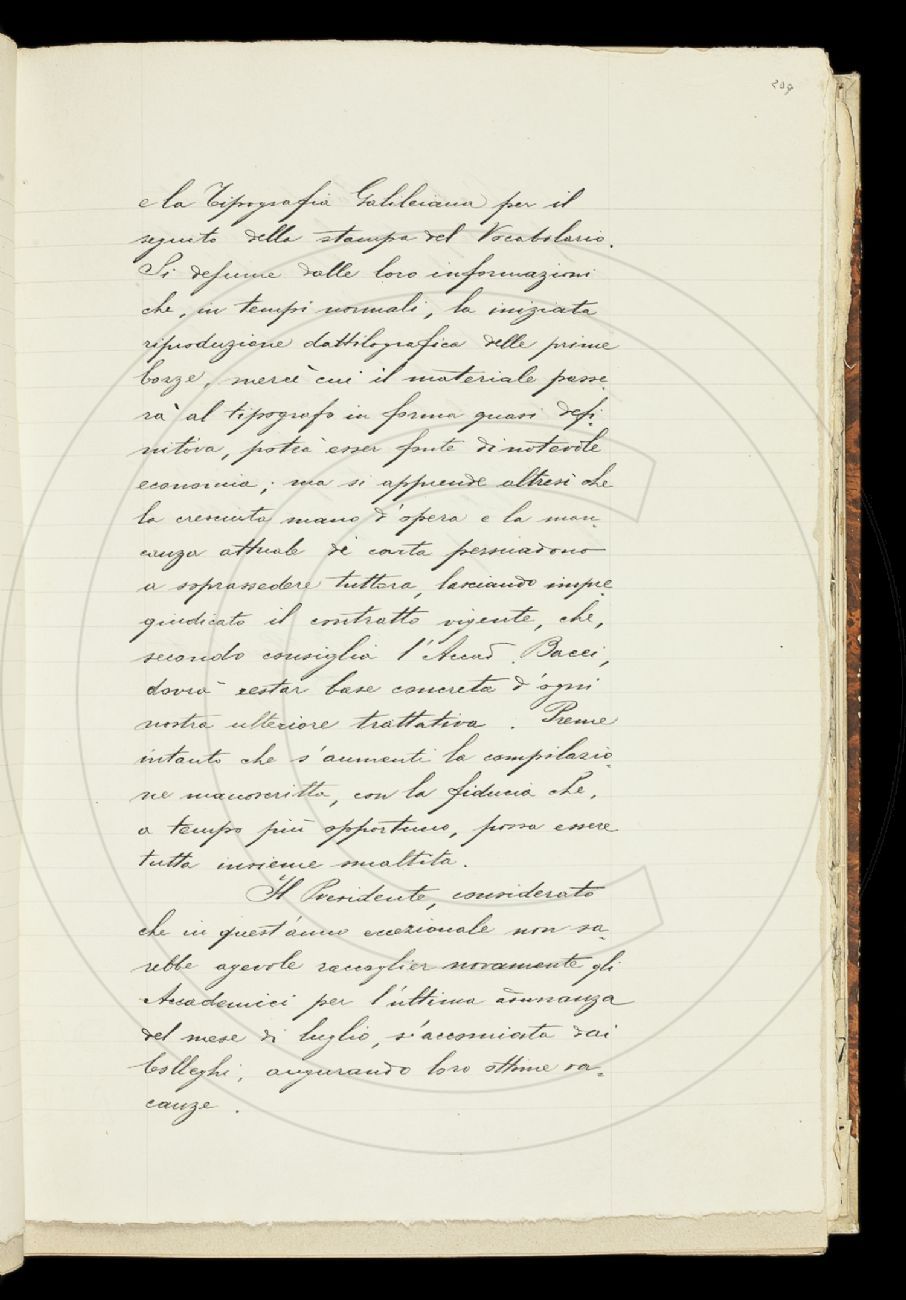 209
e la Tipografia Galileiana per il
seguito della stampa del Vocabolario.
Si desume dalle loro informazioni
che, in tempi normali, la iniziata
riproduzione dattilografica delle prime
bozze, mercè cui il materiale passe-
rà al tipografo in forma quasi defi-
nitiva, potrà esser fonte di notevole
economia; ma si apprende altresì che
la cresciuta mano d'opera e la man-
canza attuale di carta persuadono
a soprassedere tuttora, lasciando impre-
giudicato il contratto vigente, che,
secondo consiglia l'Accad. Bacci,
dovrà restar base concreta d'ogni
nostra ulteriore trattativa. Preme
intanto che s'aumenti la compilazio-
ne manoscritta, con la fiducia che,
a tempo più opportuno, possa essere
tutta insieme smaltita.
Il Presidente, considerato
che in quest'anno eccezionale non sa-
rebbe agevole raccoglier novamente gli
Accademici per l'ultima adunanza
del mese di luglio, s'accomiata dai
Colleghi, augurando loro ottime va-
canze.